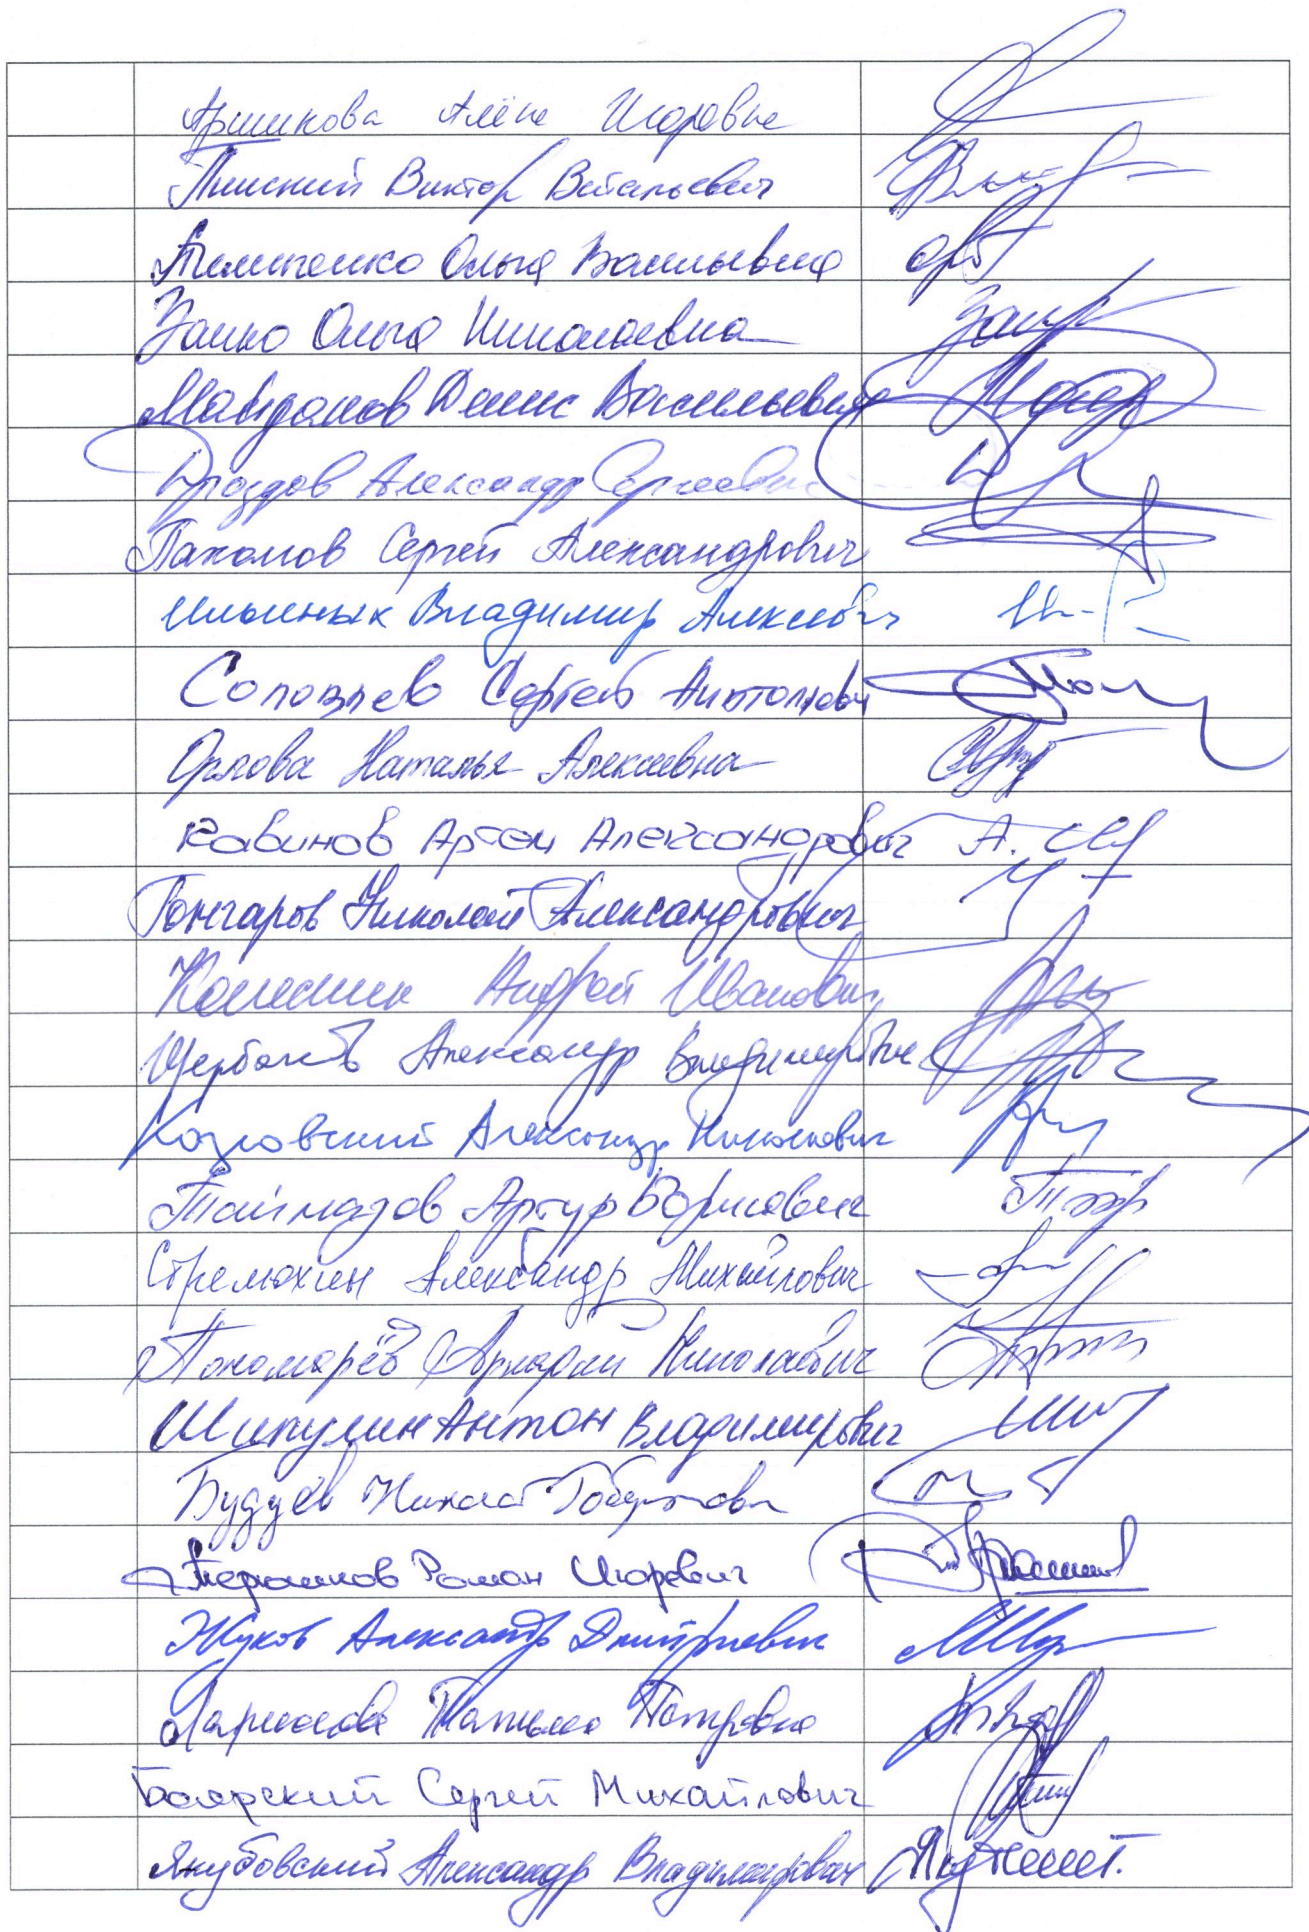 Аршинова Алёна Игоревна
Пинский Виктор Витальевич
Тимофеева Ольга Викторовна
Занко Ольга Николаевна
Майданов Денис Васильевич
Дроздов Александр Сергеевич
Пахомов Сергей Александрович
Ильиных Владимир Алексеевич
Соловьев Сергей Анатольевич
Орлова Наталья Алексеевна
Кавинов Артем Александрович
Гончаров Николай Александрович
Колесник Андрей Иванович
Щербаков Александр Владимирович
Козловский Александр Николаевич
Таймазов Артур Борисович
Стрелюхин Александр Михайлович
Пономарёв Аркадий Николаевич
Шипулин Антон Владимирович
Будуев Николай Робертович
Терюшков Роман Игоревич
Жуков Александр Дмитриевич
Ларионова Татьяна Петровна
Боярский Сергей Михайлович
Якубовский Александр Владимирович